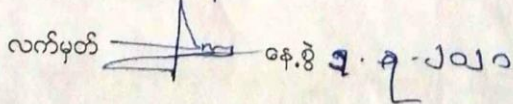 လက်မှတ် နေ့စွဲ ၃.၃.၂၀၂၁